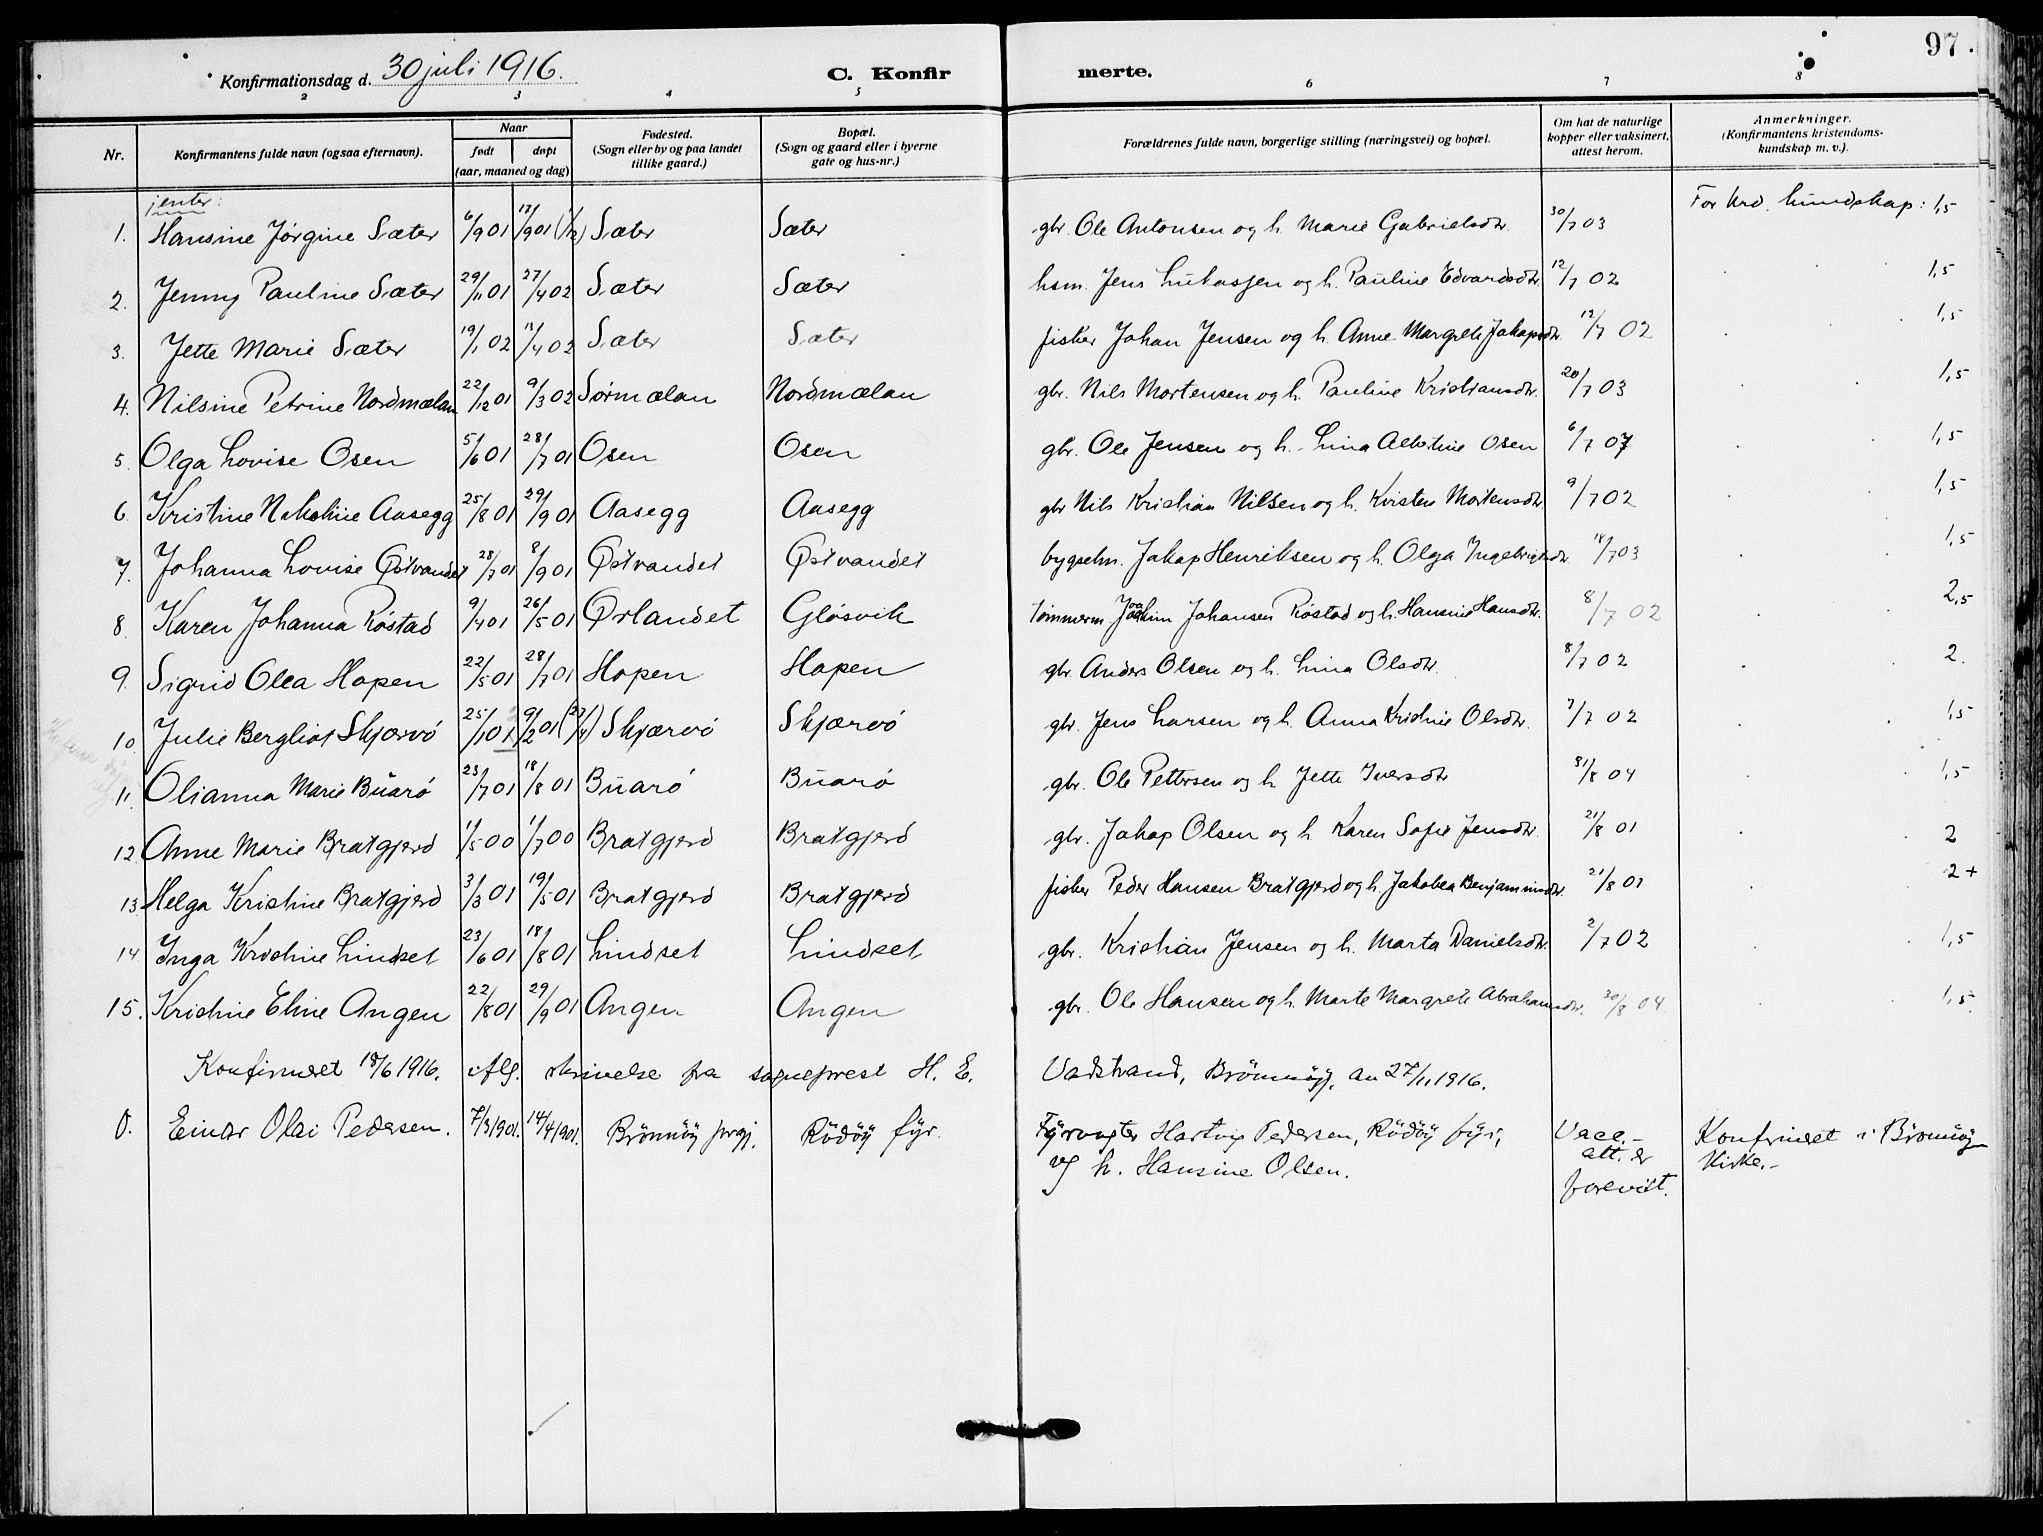 97.
Konfirmationsdag d. 30 juli 1916. C. Konfirmerte.
2 3 4 5 6 7 8
Nr. Konfirmantens fulde navn (ogsaa efternavn). Naar født døpt (aar, maaned og dag) Fødested. (Sogn eller by og paa landet tillike gaard.) Bopæl. (Sogn og gaard eller i byerne gate og hus-nr.) Forældrenes fulde navn, borgerlige stilling (næringsvei) og bopæl. Om hat de naturlige kopper eller vaksinert, attest herom. Anmerkninger. (Konfirmantens kristendoms-kundskap m. v.).
jenter:
1. Hansine Jørgine Sæter 6/9 01 Sæter Sæter gbr. Ole Antonsen og h. Marie Gabrielsdtr. 30/7 03 For krd. kundskap: 1,5
2. Jenny Pauline Sæter 29/11 01 27/4 02 Sæter Sæter hsm. Jens Lukassen og h. Pauline Edvardsdtr. 12/7 02 1,5
3. Jette Marie Sæter 19/1 02 13/4 02 Sæter Sæter fisker Johan Jensen og h. Anne Margrete Jakapsdtr. 12/7 02 1,5
4. Nilsine Petrine Nordmælan 22/12 01 9/3 02 Sørmælan Nordmælan gbr. Nils Mortensen og h. Pauline Kristiansdtr. 20/7 03 1,5
5. Olga Lovise Osen 5/6 01 28/7 01 Osen Osen gbr. Ole Jensen og h. Lina Albertine Osen 6/7 07 1,5
6. Kristine Nikoline Aasegg 25/8 01 29/9 01 Aasegg Aasegg gbr Nils Kristian Nilsen og h. Kristen Mortensdtr. 9/7 02 1,5
7. Johanna Lovise Østvandet 28/7 01 8/9 01 Østvandet Østvandet bygselm. Jakap Henriksen og h. Olga Ingebrigtsdtr. 18/7 03 1,5
8. Karen Johanna Røstad 9/4 01 26/5 01 Ørlandet Gløsvik tømmerm Joakim Johansen Røstad og h. Hansine Hansdtr. 8/7 02 2,5
9. Sigrid Olea Hopen 22/5 01 28/7 01 Hopen Hopen gbr. Anders Olsen og h. Lina Olsdtr. 8/7 02 2.
10. Julie Bergliot Skjærvø 25/10 1 9/2 01 Skjærvø Skjærvø gbr. Jens Larsen og h. Anna Kristine Olsdtr. 7/7 02 1,5
11. Olianna Marie Buarø 23/7 01 18/8 01 Buarø Buarø gbr. Ole Pettersen og h Jette Iversdtr 31/8 04 1,5
12. Anne Marie Bratgjerd 11/5 00 1/7 00 Bratgjerd Bratgjerd gbr. Jakap Olsen og h Karen Sofie Jensdtr. 21/8 01 2
13. Helga Kristine Bratgjerd 3/3 01 19/5 01 Bratgjerd Bratgjerd fisker Peder Hansen Bratgjerd og h. Jakobea Benjaminsdtr. 21/8 01 2+
14 Inga Kristine Lindset 23/6 01 18/8 01 Lindset Lindset gbr. Kristian Jensen og h. Marta Danielsdtr. 2/7 02 1,5
15. Kristine Eline Angen 22/8 01 29/9 01 Angen Angen gbr. Ole Hansen og h. Marte Margrete Abrahamsdtr. 30/8 04 1,5
Konfirmeret 18/6 1916, iflg. skrivelse fra sogneprest H. E. Vadstrand, Brönnöy, av 27/11 1916.
0. Einar Olai Pedersen. 7/3 1901. 14/4 1901. Brönnöy prgj. Rödöy fyr. Fyrvogter Hartvig Pedersen, Rödöy fyr, Vacc.- Konfirmeret i Brönnöy
og h. Hansine Olsen. att. er Kirke.-
forevist.